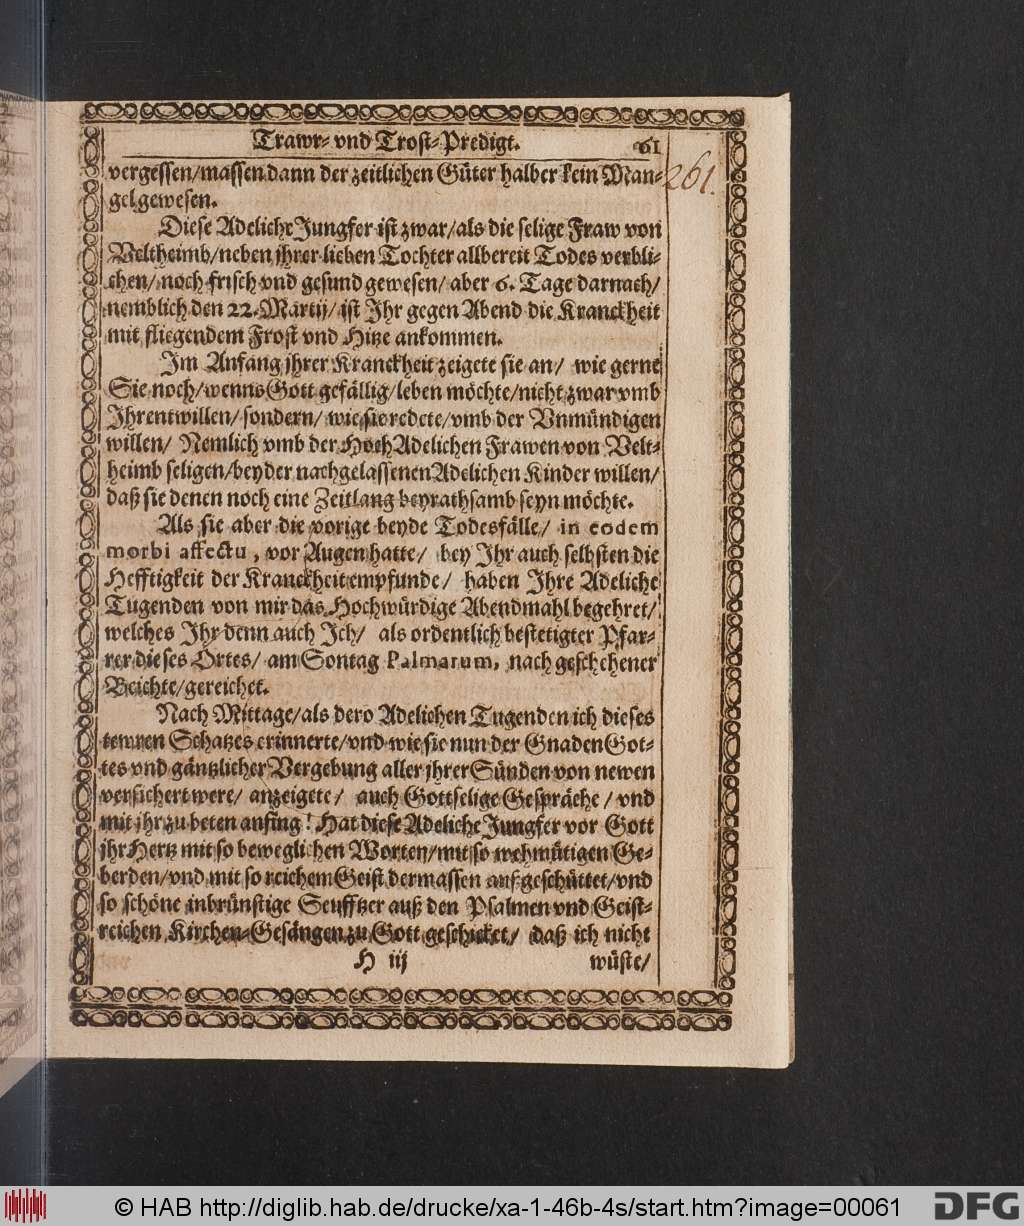 Trawr- vnd Trost-Predigt. 61
261.
vergessen/massen dann der zeitlichen Güter halber kein Man-
gel gewesen.
Diese Adeliche Jungfer ist zwar/als die selige Fraw von
Veltheimb/neben jhrer lieben Tochter allbereit Todes verbli-
chen/noch frisch vnd gesund gewesen/ aber 6. Tage darnach/
nemblich den 22. Martij/ ist Ihr gegen Abend die Kranckheit
mit fliegendem Frost vnd Hitze ankommen.
Im Anfang jhrer Kranckheit zeigete sie an/ wie gerne
Sie noch/wenns Gott gefällig/leben möchte/nicht zwar vmb
Ihrentwillen/sondern/ wie sie redete/vmb der Vnmündigen
willen/ Nemlich vmb der HochAdelichen Frawen von Velt-
heimb seligen/beyder nachgelassenen Adelichen Kinder willen/
daß sie denen noch eine Zeitlang beyrathsamb seyn möchte.
Als sie aber die vorige beyde Todesfälle/ in eodem
morbi affectu, vor Augen hatte/ bey Ihr auch selbsten die
Hefftigkeit der Kranckheit empfunde/ haben Ihre Adeliche
Tugenden von mir das Hochwürdige Abendmahl begehret/
welches Ihr denn auch Ich/ als ordentlich bestetigter Pfar-
rer dieses Ortes/ am Sontag Palmarum, nach geschehener
Beichte/gereichet.
Nach Mittage/als dero Adelichen Tugenden ich dieses
tewren Schatzes erinnerte/vnd wie sie nun der Gnaden Got-
tes vnd gäntzlicher Vergebung aller jhrer Sünden von newen
versichert were/ anzeigete/ auch Gottselige Gespräche/ vnd
mit jhr zu beten anfing! Hat diese Adeliche Jungfer vor Gott
jhr Hertz mit so beweglichen Worten/mit so wehmütigen Ge-
berden/vnd mit so reichem Geist dermassen außgeschüttet/vnd
so schöne inbrünstige Seufftzer auß den Psalmen vnd Geist-
reichen Kirchen-Gesängen zu Gott geschicket/ daß ich nicht
H iij wüste/
© HAB http://diglib.hab.de/drucke/xa-1-46b-4s/start.htm?image=00061 DFG